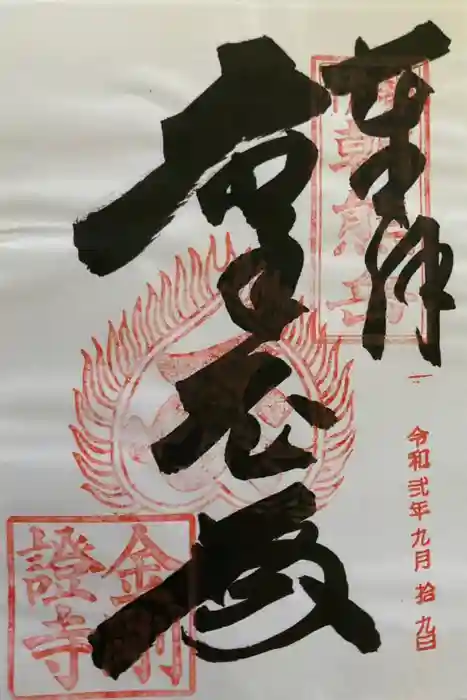 奉拝
朝熊岳
虚空蔵
令和弐年九月拾九日
金剛
證寺